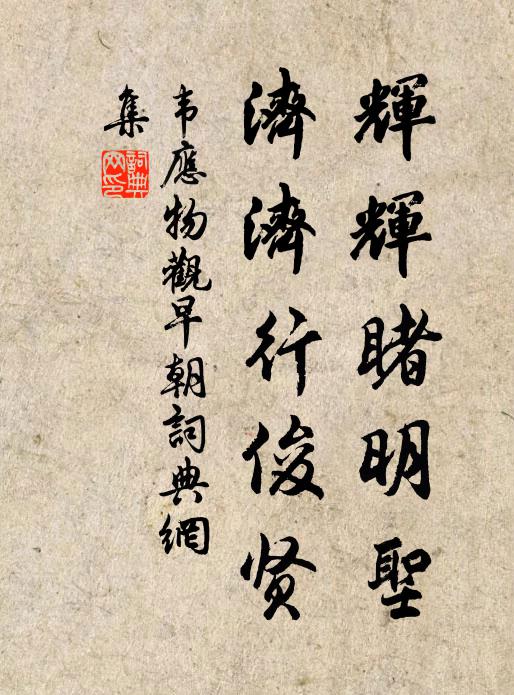 輝輝睹明聖
濟濟行俊贤
韦應物觀早朝詞典網
集
詞典網印